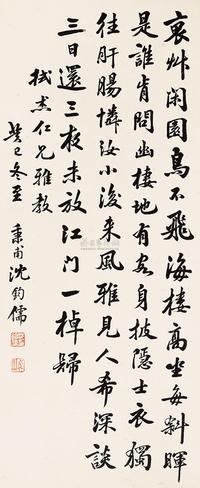 衰艸闲園鳥不飛海棲高坐每斜暉
是誰肯問幽棲地有客身披隐士衣獨
往肝腸憐汝小後來風雅見人希深談
三日還三夜未放江門一棹歸
拭杰仁兄雅教
癸已冬至
秉甫沈鈞儒